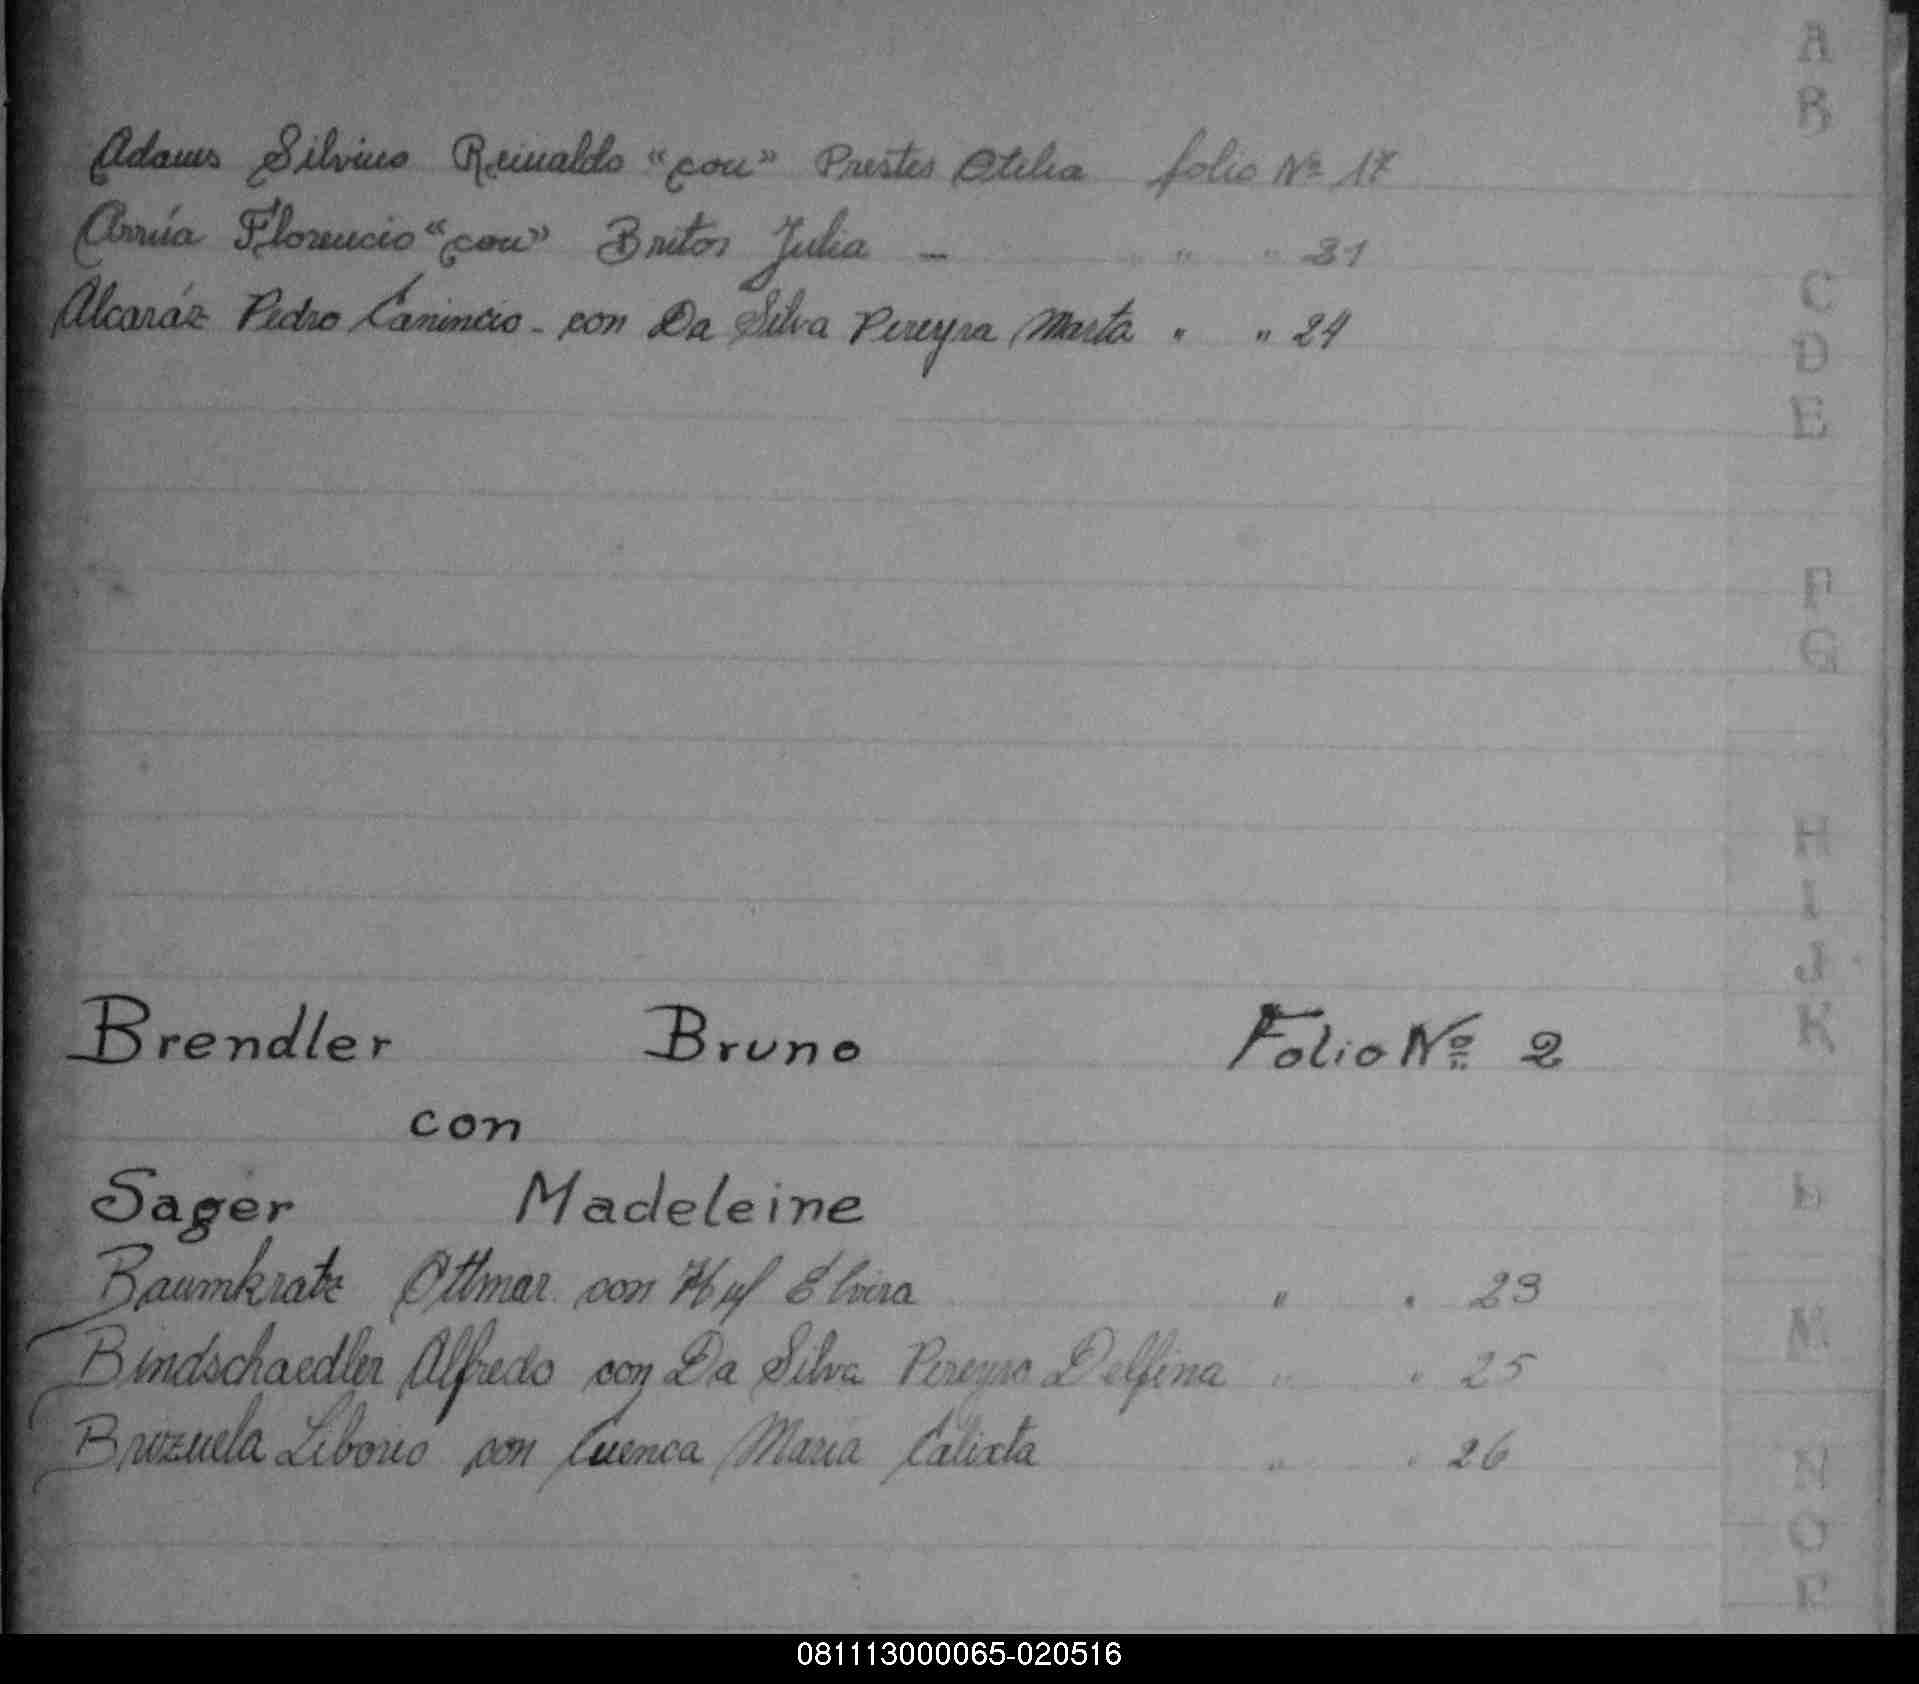 A
B
Adams Silvino Reinaldo "con" Prestes Otilia folio Nº 17
Arrúa Florencio "con" Britos Julia — " " " 31
Alcaráz Pedro - con Da Silva Pereyra Marta " " 24
C
D
E
F
G
H
I
J
K
Brendler Bruno Folio Nº 2
con
Sager Madeleine
L
Baumkratz Ottmar con Huf Elvira " " 23
M
Bindschaedler Alfredo con Da Silva Pereyra Delfina " " 25
Brizuela Liborio con Cuenca María Calixta " " 26
N
O
P
081113000065-020516